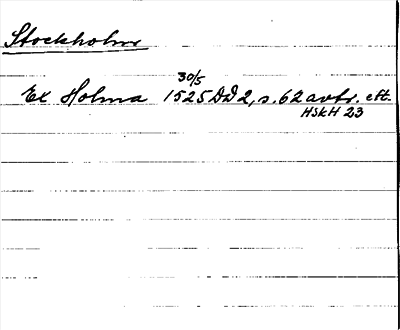 Stockholm
Ex Holma 1525 30/5 DD 2, s. 62 avtr. ett.
HSkH 23